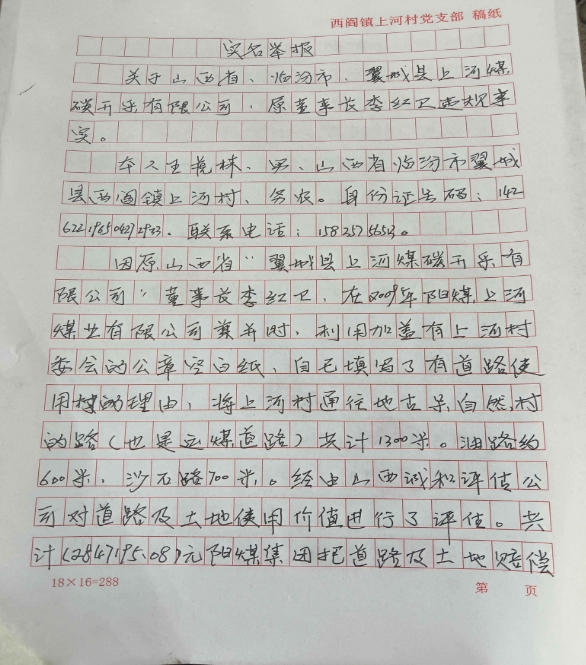 西阎镇上河村党支部 稿纸
实名举报
关于山西省、临汾市、翼城县上河煤
碳开采有限公司,原董事长李红卫违规事
实。
本人王艳林、男、山西省临汾市翼城
县西阎镇上河村、务农。身份证号码:142
联系电话:
因原山西省“翼城县上河煤碳开采有
限公司”董事长李红卫,在2009年阳煤上河
煤业有限公司兼并时,利用加盖有上河村
委会的公章空白纸,自己填写了有道路使
用权的理由,将上河村通往地古朵,自然村
的路(也是运煤道路)共计1300米。油路约
600米,沙石路700米,。经由山西诚和评估公
司对道路及土地使用价值进行了评估。共
计(2847195.08)元阳煤集团把道路及土地赔偿
18×16=288
第 页